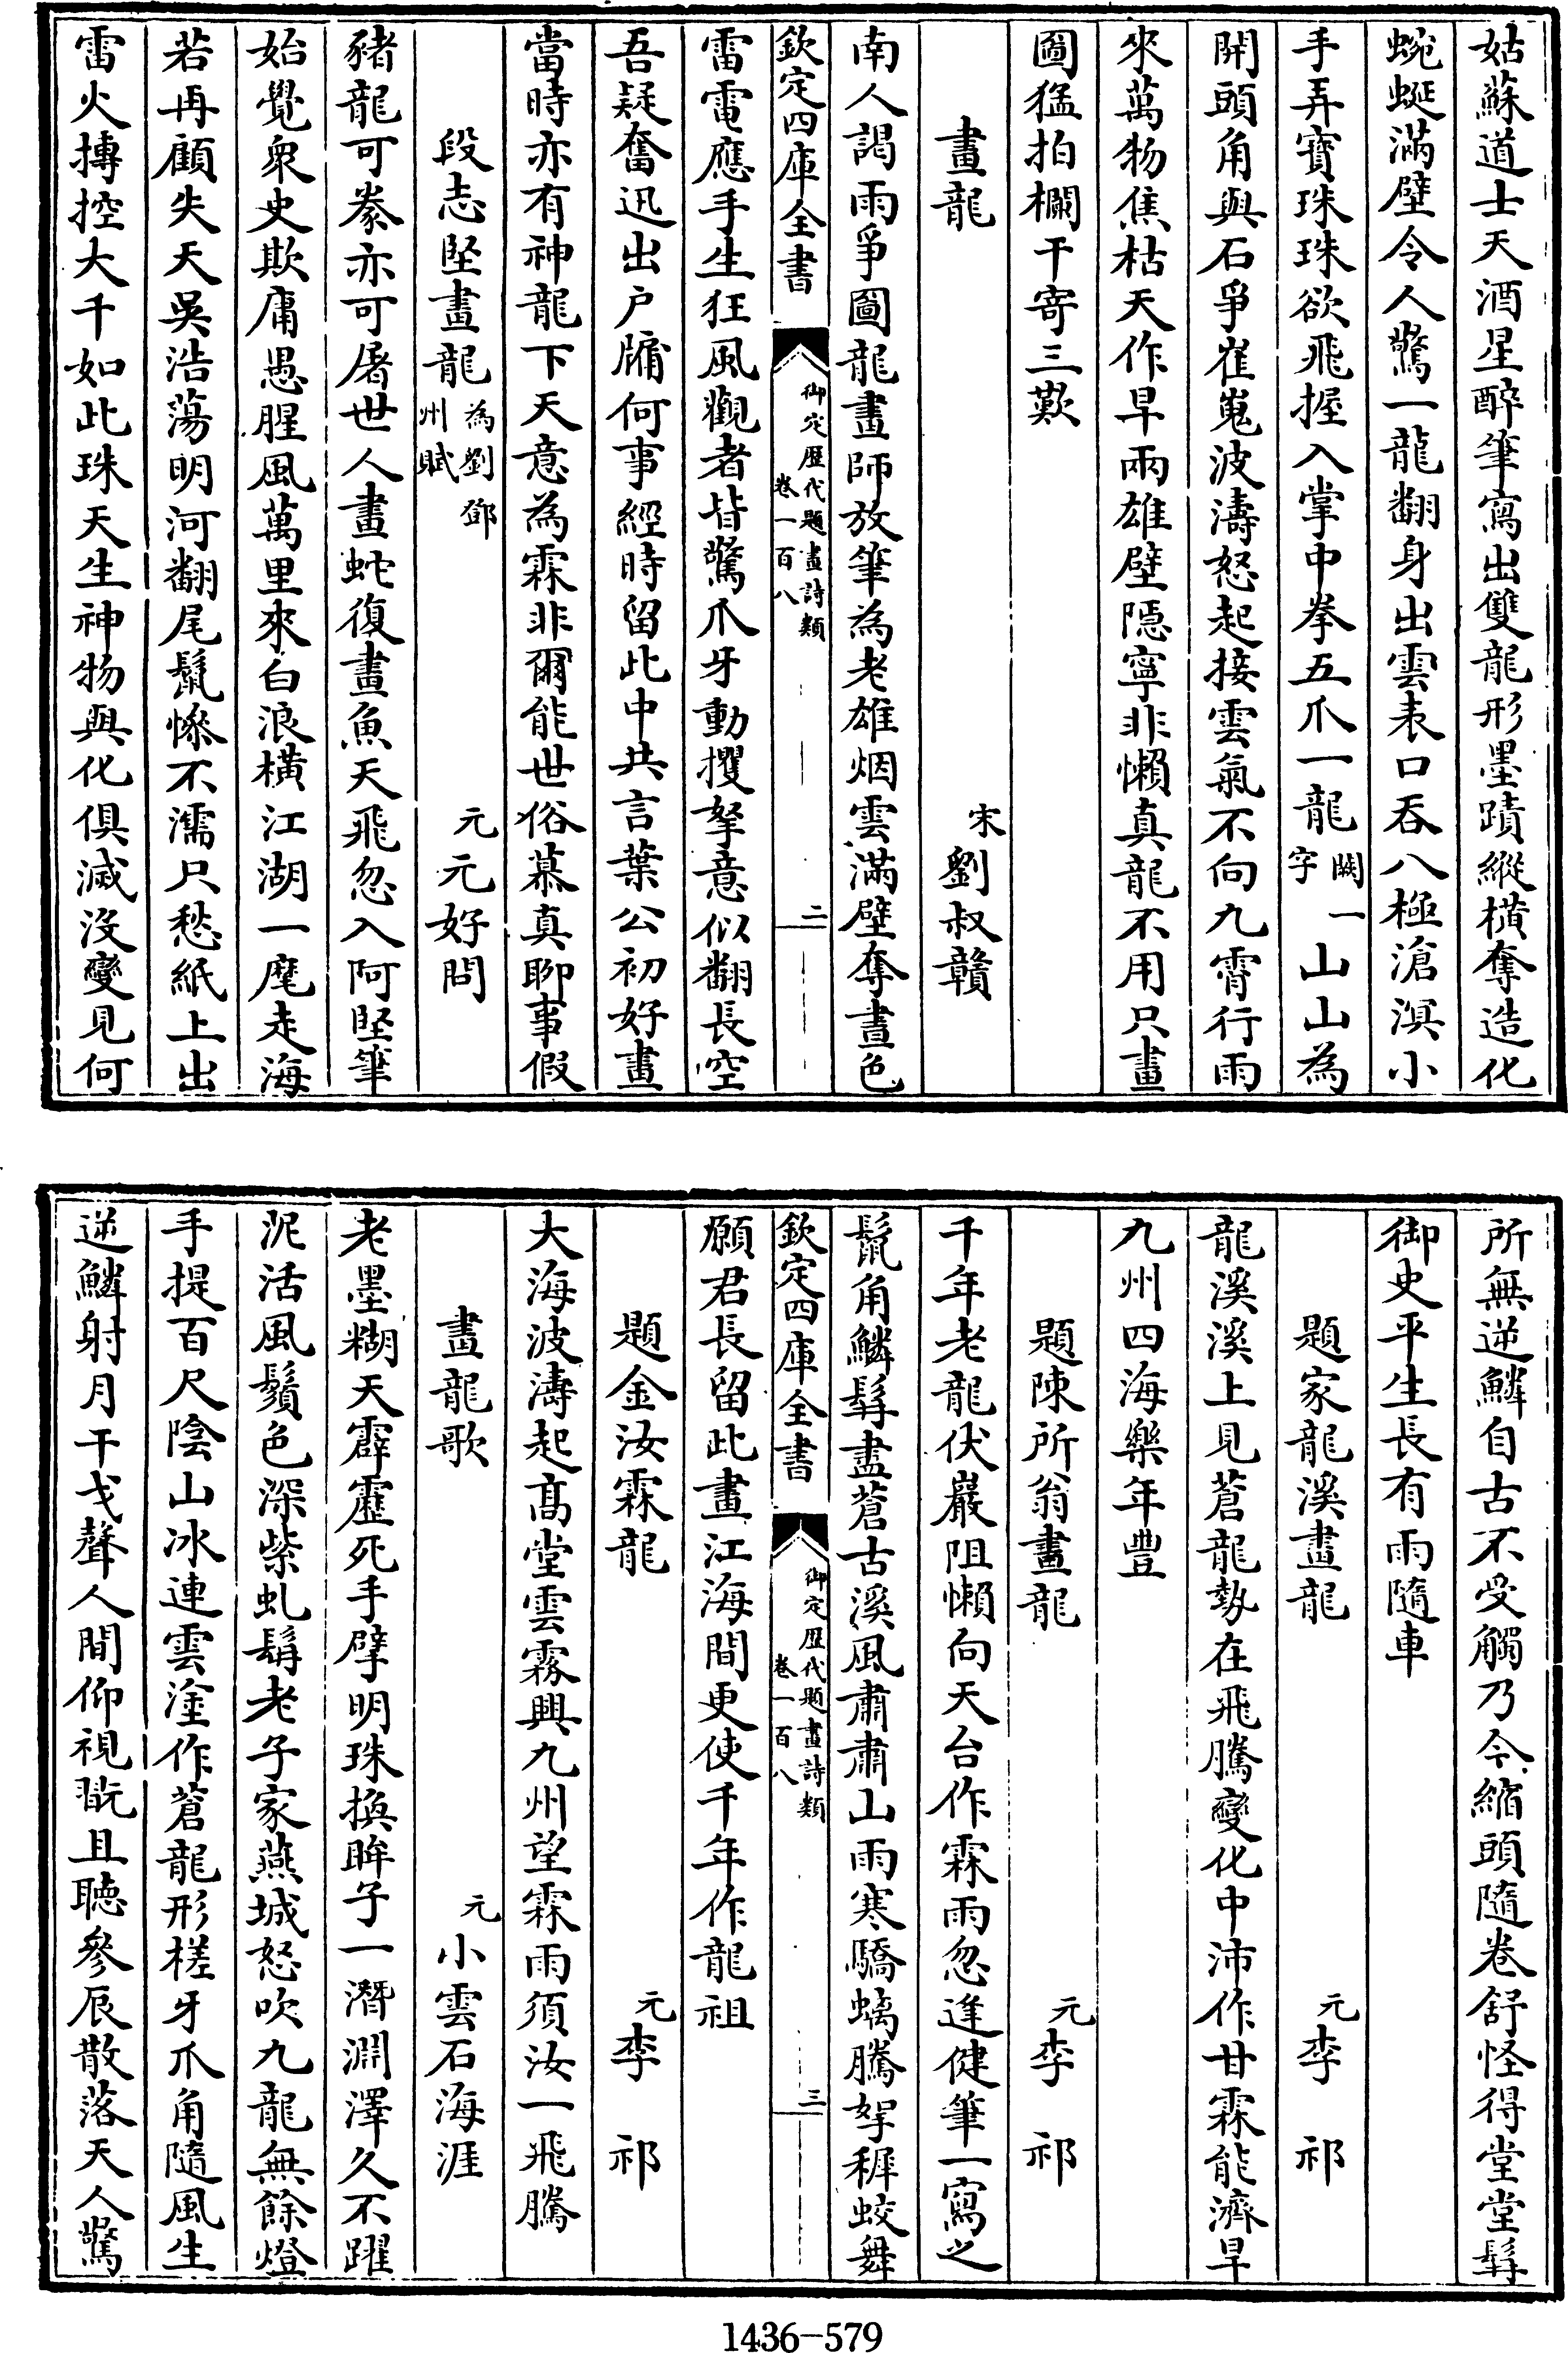 姑蘇道士天酒星醉筆寫出雙龍形墨蹟縱橫奪造化
蜿蜒滿壁令人驚一龍翻身出雲表口吞八極滄溟小
手弄寶珠珠欲飛握入掌中拳五爪一龍闕一字山山為
開頭角與石爭崔嵬波濤怒起接雲氣不向九霄行雨
來萬物焦枯天作旱兩雄壁隱寧非懶真龍不用只畫
圖猛拍欄干寄三歎
畫龍 宋劉叔贛
南人謁雨爭圖龍畫師放筆為老雄烟雲滿壁奪晝色
欽定四庫全書 御定歷代題畫詩類 卷一百八 二
雷電應手生狂風觀者皆驚爪牙動攫拏意似翻長空
吾疑奮迅出户牖何事經時留此中共言葉公初好畫
當時亦有神龍下天意為霖非爾能世俗慕真聊事假
段志堅畫龍為劉鄧州賦 元元好問
豬龍可豢亦可屠世人畫蛇復畫魚天飛忽入阿堅筆
始覺衆史欺庸愚腥風萬里來白浪橫江湖一麾走海
若再顧失天吳浩蕩明河翻尾鬣慘不濡只愁紙上出
雷火搏控大千如此珠天生神物與化俱滅沒變見何
所無逆鱗自古不受觸乃今縮頭隨卷舒怪得堂堂髯
御史平生長有雨隨車
題家龍溪畫龍 元李祁
龍溪溪上見蒼龍勢在飛騰變化中沛作甘霖能濟旱
九州四海樂年豐
題陳所翁畫龍 元李祁
千年老龍伏巖阻懶向天台作霖雨忽逢健筆一寫之
鬣角鱗髯盡蒼古溪風肅肅山雨寒驕螭騰挐穉蛟舞
欽定四庫全書 御定歷代題畫詩類 卷一百八 三
願君長留此畫江海間更使千年作龍祖
題金汝霖龍 元李祁
大海波濤起高堂雲霧興九州望霖雨須汝一飛騰
畫龍歌 元小雲石海涯
老墨糊天霹靂死手擘明珠換眸子一潛淵澤久不躍
泥活風鬚色深紫虬髯老子家燕城怒吹九龍無餘燈
手提百尺陰山冰連雲塗作蒼龍形槎牙爪角隨風生
逆鱗射月干戈聲人間仰視翫且聽參辰散落天人驚
1436-579